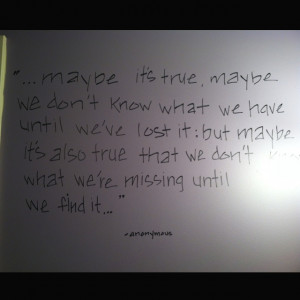 "...maybe it's true, maybe
we don't know what we have
until we've lost it; but maybe
it's also true that we don't
what we're missing until
we find it..."
-anonymous